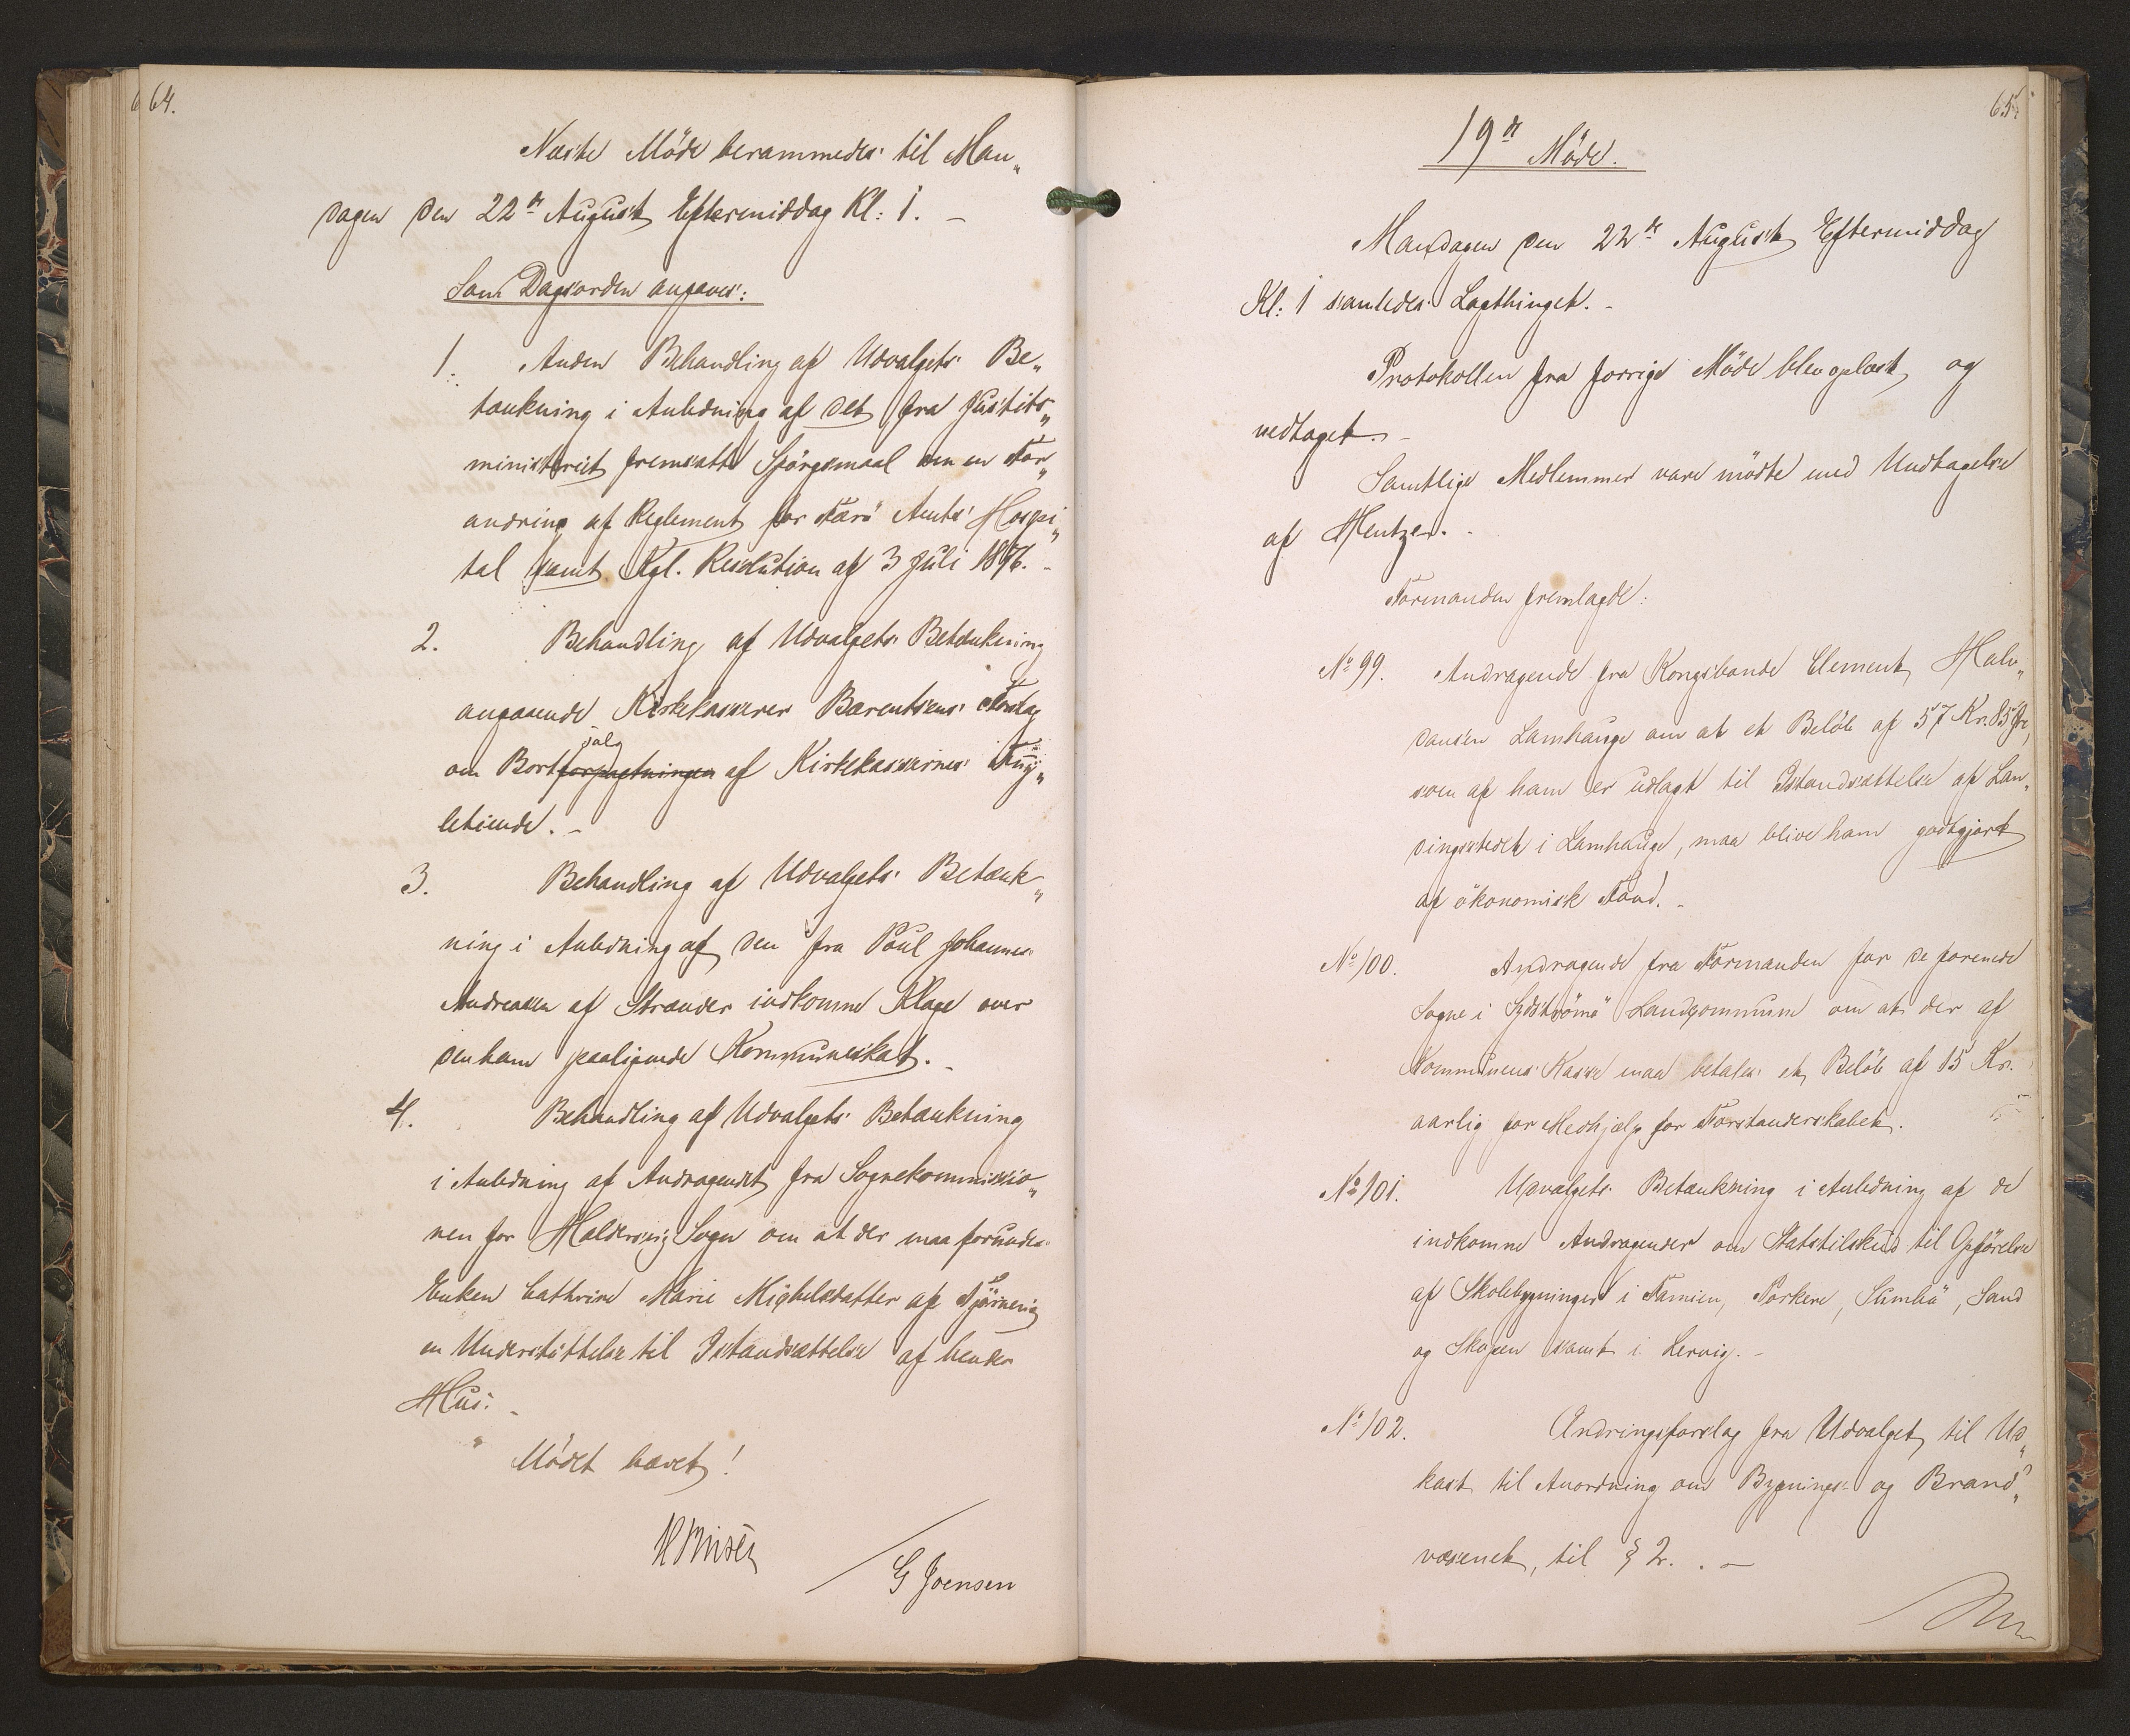 64.
Næste Möde berammedes til Man„
dagen den 22de August Eftermiddag Kl: 1. –
Som Dagsorden angaves:
1. Anden Behandling af Udvalgets Be„
tænkning i Anledning af det fra Justits„
ministeriet fremsatte Spörgsmaal om en For„
andring af Reglement for Færö Amts Hospi„
tal samt Kgl. Resolution af 3 Juli 1876. –
2. Behandling af Udvalgets Betænkning
angaaende Kirkekasserer Barentsens Forslag
salg
om Bortforpagtningen af Kirkekassernes Tug„
letiende. –
3. Behandling af Udvalgets Betænk„
ning i Anledning af den fra Poul Johannes
Andreasen af Strænder indkomne Klage over
den ham paaliggende Kommuneskat. –
4. Behandling af Udvalgets Betænkning
i Anledning af Andragendet fra Sognekommissio„
nen for Haldersvig Sogn om at der maa forundes
Enken Cathrine Marie Michelsdatter af Tjörnevig
en Understöttelse til Istandsættelse af hendes
Hus. –
Mödet hævet!
G Joensen
65.
19de Möde.
Mandagen den 22de August Eftermiddag
Kl: 1 samledes Lagthinget. –
Protokollen fra forrige Möde blev oplæst og
vedtaget. –
Samtlige Medlemmer vare mödte med Undtagelse
af Hentzer. –
Formanden fremlagde:
No 99. Andragende fra Kongsbonde Clement Halv„
dansen Lamhauge om at et Belöb af 57 Kr. 85 Öre,
som af ham er udlagt til Istandsættelse af Lan„
dingsstedet i Lamhauge, maa blive ham godtgjort
af ökonomisk Fond. –
No 100. Andragende fra Formanden for de forenede
Sogne i Sydströmö Landcommune om at der af
Kommunens Kasse maa betales et Belöb af 15 Kr.
aarlig for Medhjælp for Forstanderskabet.
No 101. Udvalgets Betænkning i Anledning af de
indkomne Andragender om Statstilskud til Opförelse
af Skolebygninger i Famien, Porkere, Sumbö, Sand
og Skopen samt i Lervig. –
No 102. Ændringsforslag fra Udvalget til Ud„
kast til Anordning om Bygnings- og Brand„
væsenet, til § 2. . –